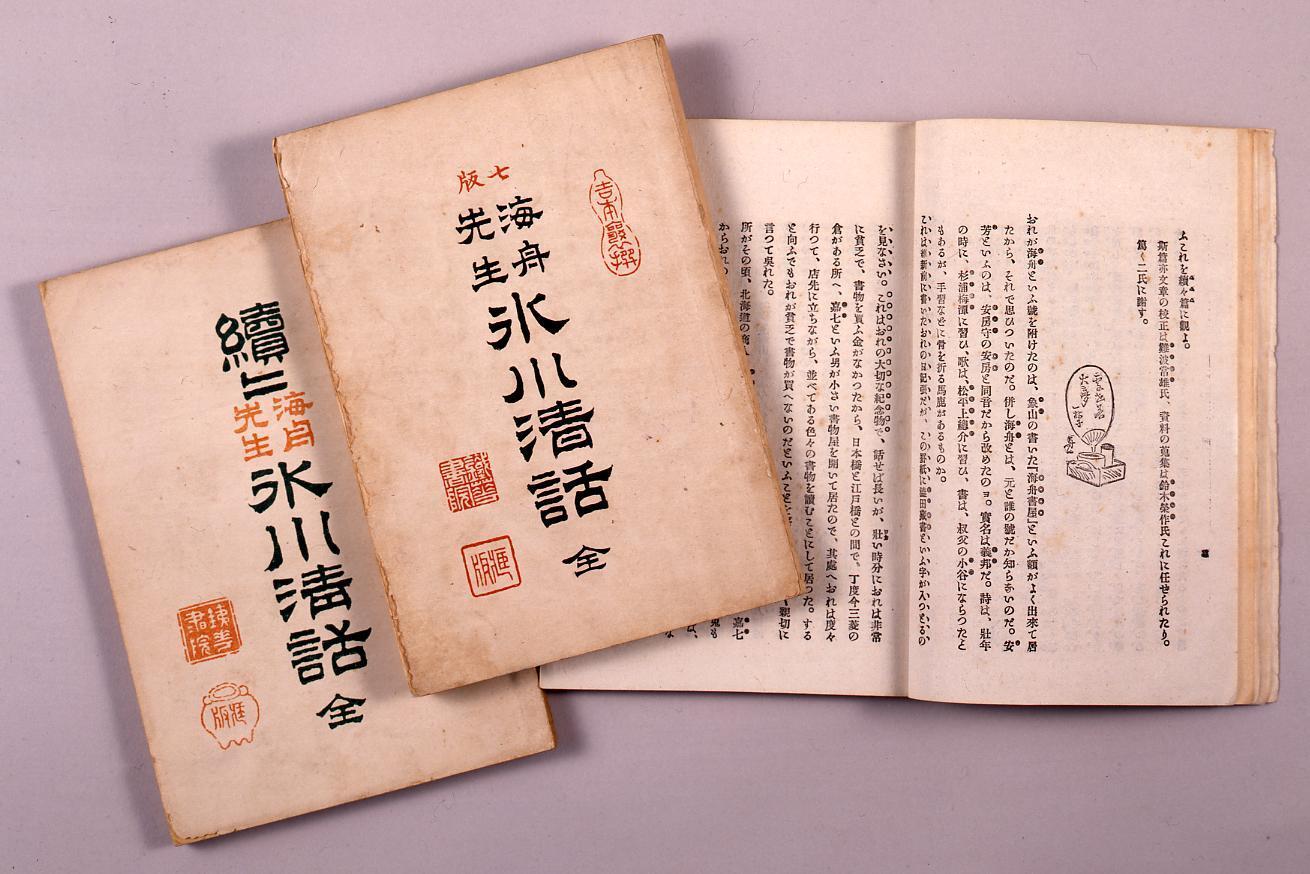 續々
海舟
先生
氷川清話
全
鐵華
書院
蔵版
七版
海舟
先生
氷川清話
全
吉本襄撰
鐵華
書院
蔵版
ふこれを續々篇に觀よ。
斯篇亦文章の校正は難波常雄氏、資料の蒐集は鈴木榮作氏これに任せられたり。
篇く二氏に謝す。
おれが海舟といふ號を附けたのは、象山の書いた『海舟書屋』といふ額がよく出來て居
たから、それで思ひついたのだ。併し海舟とは、元と誰の號だか知らないのだ。安
芳といふのは、安房守の安房と同音だから改めたのヨ。實名は義邦だ。詩は、壯年
の時に、杉浦梅潭に習ひ、歌は、松平上總介に習ひ、書は、叔父の小谷にならつたと
もあるが、手習なぞに骨を折る馬鹿があるものか。
これは維新前に書いたおれの日記張だが、この罫紙に
を見なさい。これはおれの大切な紀念物で、話せば長いが、壯い時分におれは非常
に貧乏で、書物を買ふ金がなかつたから、日本橋と江戸橋との間で、丁度今三菱の
倉がある所へ、嘉七といふ男が小さい書物屋を開いて居たので、其處へおれは度々
行つて、店先に立ちながら、並べてある色々の書物を讀むことにして居つた。する
と向ふでもおれが貧乏で書物が買へないのだといふことを
親切に
言つて呉れた。
所がその頃、北海道の商人
嘉七
からおれの